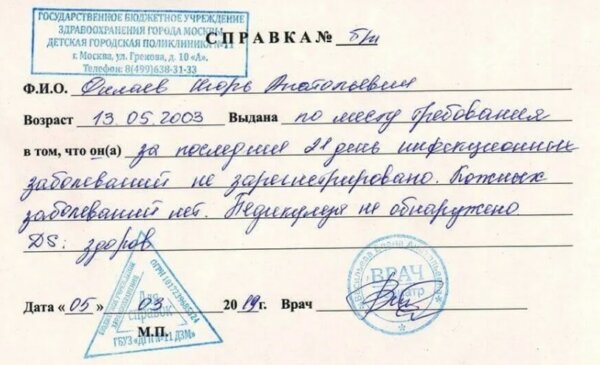 ГОСУДАРСТВЕННОЕ БЮДЖЕТНОЕ УЧРЕЖДЕНИЕ
ЗДРАВООХРАНЕНИЯ ГОРОДА МОСКВЫ
ДЕТСКАЯ ГОРОДСКАЯ ПОЛИКЛИНИКА №11
г. Москва, ул. Грекова, д. 10 «А».
Телефон: 8(499)638-31-33
СПРАВКА № Б/н
Ф.И.О. Игорь Анатольевич
Возраст 13 05 2003 Выдана по месту требования
в том, что он(а) за последний 21 день инфекционных
заболеваний не зарегистрировано. Кожных
заболеваний нет. Педикулез не обнаружено
DS: здоров
Дата «05» 03 2019г. Врач
М.П.
Для
справок
ГБУЗ «ДГП №11 ДЗМ»
ВРАЧ